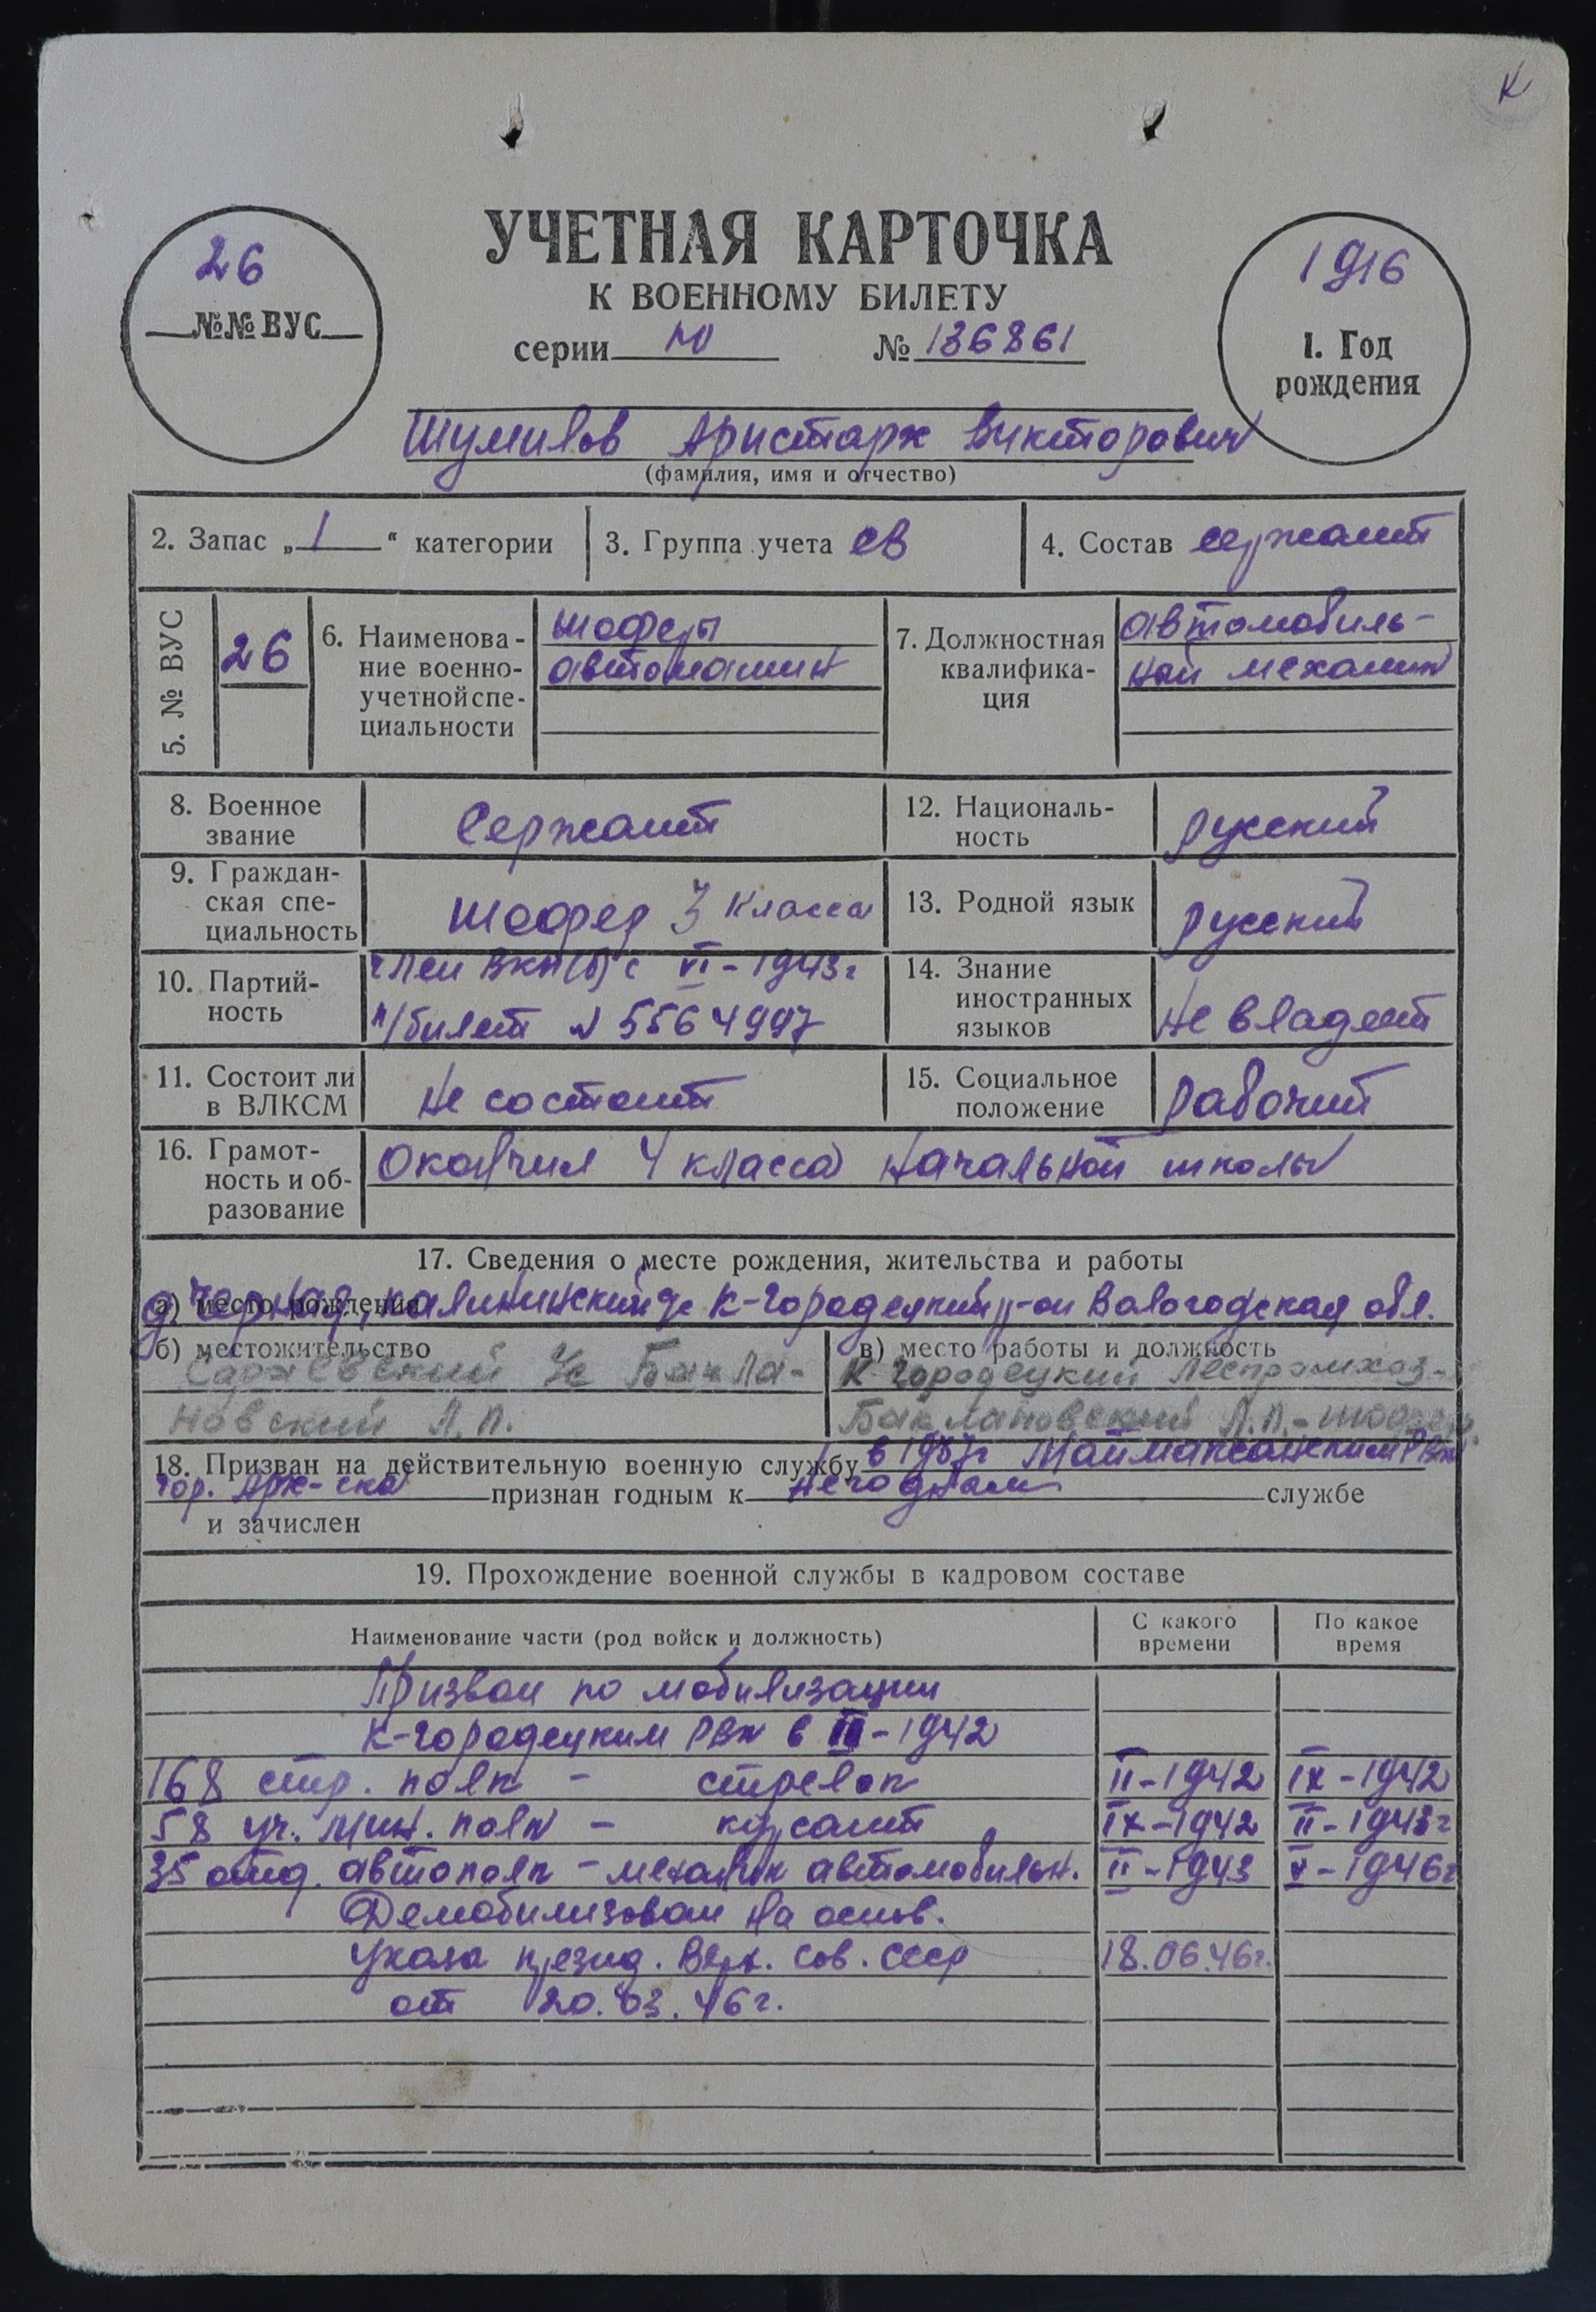 К
УЧЕТНАЯ КАРТОЧКА
К ВОЕННОМУ БИЛЕТУ
26
№№ ВУС
серии Ю № 136861
1916
1. Год
рождения
Шумилов Аристарх Викторович
(фамилия, имя и отчество)
2. Запас „1“ категории
3. Группа учета СВ
4. Состав сержант
5. № ВУС
26
6. Наименова-
ние военно-
учетной спе-
циальности
шоферы
автомашин
7. Должностная
квалифика-
ция
автомобиль-
ный механик
8. Военное
звание
Сержант
12. Националь-
ность
русский
9. Граждан-
ская спе-
циальность
шофер 3 класса
13. Родной язык
русский
10. Партий-
ность
член ВКП(б) с VI-1943г
п/билет № 5564997
14. Знание
иностранных
языков
не владеет
11. Состоит ли
в ВЛКСМ
не состоит
15. Социальное
положение
рабочий
16. Грамот-
ность и об-
разование
Окончил 4 класса начальной школы
17. Сведения о месте рождения, жительства и работы
а) место рождения
д. Черная, Калининский с/с К-Городецкий р-он Вологодская обл.
б) местожительство
Сараевский с/с Бакла-
новский Л.П.
в) место работы и должность
К-Городецкий Леспромхоз-
Баклановский Л.П. - шофер.
18. Призван на действительную военную службу в 1937г Маймаксанским РВК
гор. Арх-ска признан годным к негодным службе
и зачислен
19. Прохождение военной службы в кадровом составе
Наименование части (род войск и должность)
С какого
времени
По какое
время
Призван по мобилизации
К-Городецким РВК в III-1942
168 стр. полк - стрелок II-1942 IX-1942
58 уч. мин. полк - курсант IX-1942 II-1943г
35 отд. автополк - механик автомобильн. II-1943 V-1946г
Демобилизован на основ.
Указа презид. Верх. Сов. СССР 18.06.46г.
от 20.03.46г.